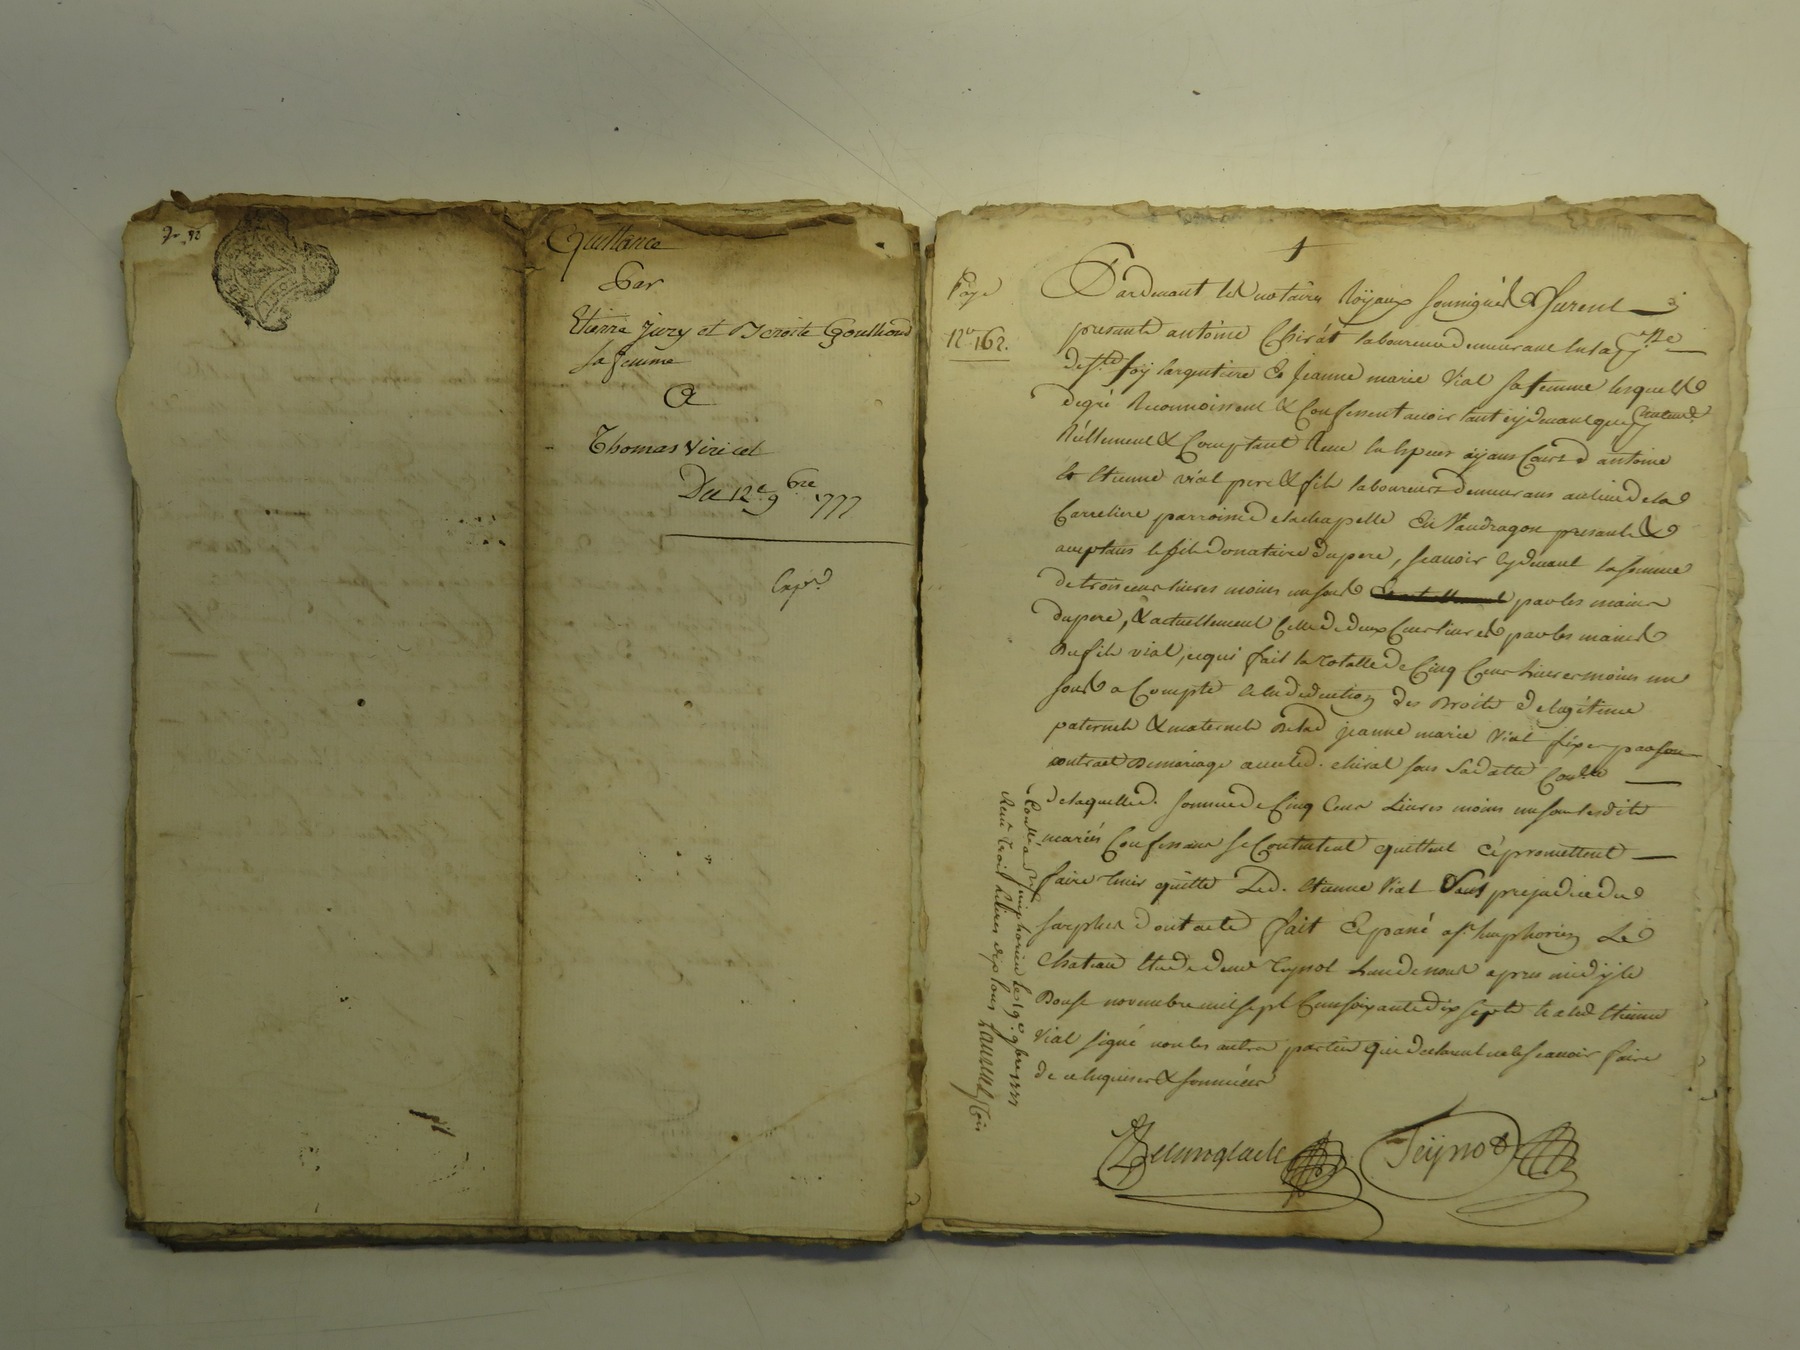 Quittance
Par
Etienne Jury et Benoite Goullioud
sa femme
A
Thomas Viricel
Du 12e 9bre 1777
Exp.d
Page
No 162.
Pardevant les notaires Royaux soussignés furent
presants antoine Chirât laboureur demeurant en la
de ste foÿ largentiere & Jeanne marie Vial sa femme lesquels
de gré Reconnoissent & Confessent avoir tant cÿdevant que
Réellement & Comptant Reçu en Especes aÿans Cours d antoine
& Etienne vial pere & fils laboureurs demeurans au lieu de la
Carreliere parroisse de la chapelle En Vaudragon presants &
acceptans le fils donataire du pere, scavoir Cy devant la somme
de trois cens livres moins un sous par les mains
du pere, & actuellement Celle de deux Cens livres par les mains
du fils vial, ce qui fait la totalle de Cinq Cens livres moins un
sous a Compte & en deduction des Droits de legitime
paternels & maternels de lad. jeanne marie Vial fixes par son
contract de mariage avec led. chirat sous sa datte
de laquelle d. somme de Cinq Cens Livres moins un sous lesdits
mariés Confessans se Contentent quittent & promettent
faire tenir quitte Led. Etienne Vial sans prejudice du
surplus dont acte fait & passé a st simphorien Le
Chateau Etude de me Teÿnot L'un de nous apres midÿ le
Douse novembre mil sept Cens soixante dix septs & a led Etienne
Vial signé non les autres parties qui declarent ne le scavoir faire
de ce Enquises & sommées
Delanglade Teÿnot
Conllé a st simphorien le 19e 9bre 1777
Reçu trois Livres dix sous